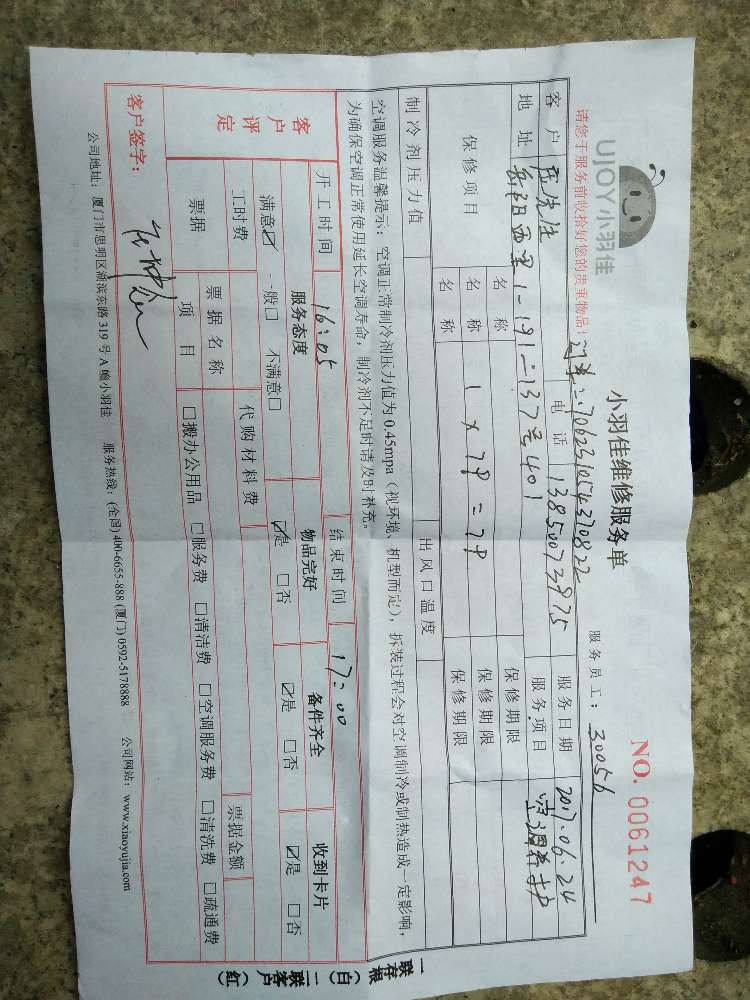 UJOY小羽佳
小羽佳维修服务单
NO. 0061247
请您于服务前收拾好您的贵重物品！
服务员工：30056
订单：706231054370822
客户 庄先生 电话 13850073975 服务日期 2017.06.24
地址 岳阳西里1-191-137号401 服务项目 空调养护
保修项目 名称 保修期限
名称 1×78=78 保修期限
名称 保修期限
制冷剂压力值 出风口温度
空调服务温馨提示：空调正常制冷剂压力值为0.45mpa（视环境、机型而定），拆装过程会对空调制冷或制热造成一定影响，
为确保空调正常使用延长空调寿命，制冷剂不足时请及时补充。
客户评定 开工时间 16:05 结束时间 17:00
服务态度 物品完好 备件齐全 收到卡片
满意☑ 一般□ 不满意□ ☑是 □否 ☑是 □否 ☑是 □否
工时费 代购材料费
票据 票据名称 票据金额
项目 □搬办公用品 □服务费 □清洁费 □空调服务费 □清洗费 □疏通费
客户签字：
公司地址：厦门市思明区湖滨东路319号A幢小羽佳 服务热线：(全国) 400-6655-888 (厦门) 0592-5178888 公司网站：www.xiaoyujia.com
一联存根（白） 二联客户（红）